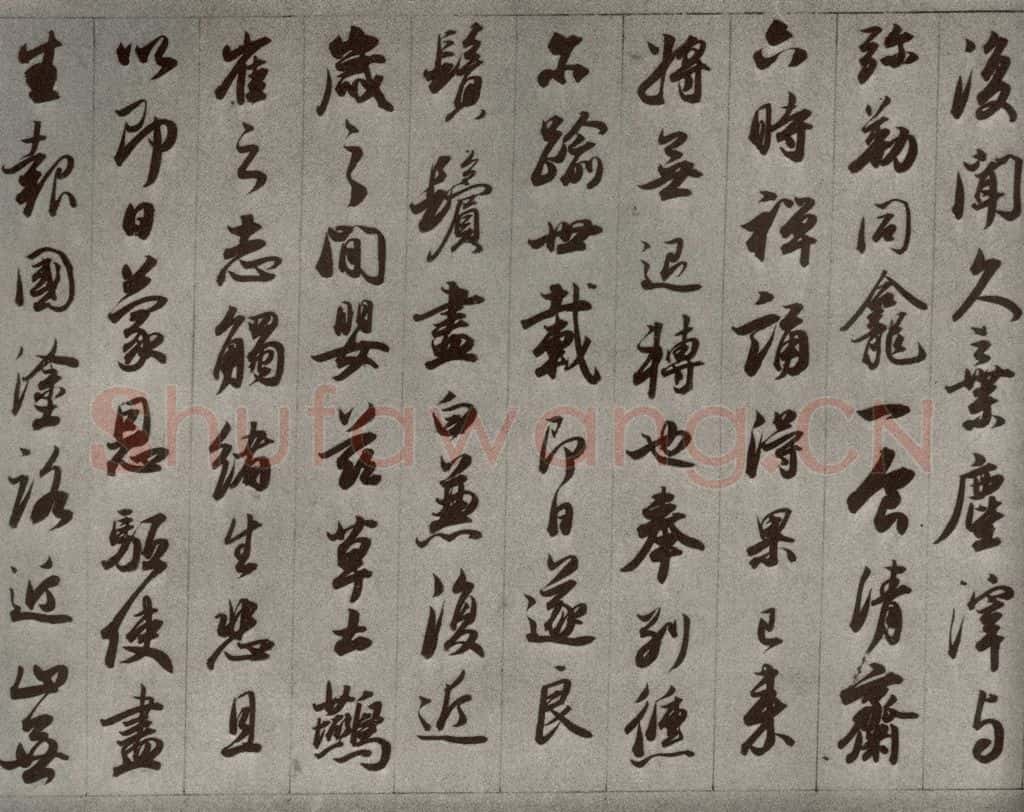 復聞久棄塵滓与
弥勒同龕一食清齋
六時禪誦得果已来
將無退轉也奉別倏
尒踰卅載即日遂良
鬚鬢盡白兼復近
歲之間嬰茲草土鷰
雀之志觸緒生悲且
以即日蒙恩驅使盡
生報國塗路近止無
Shufawang.CN